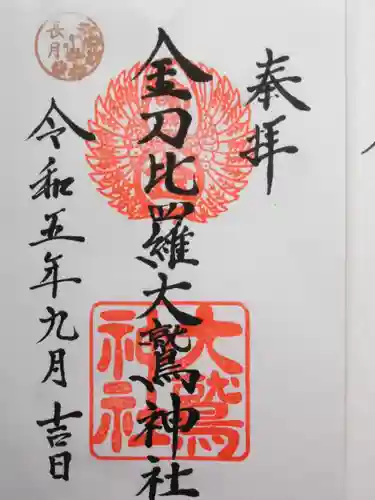 奉拝
金刀比羅大鷲神社
大鷲
神社
令和五年九月吉日
長月